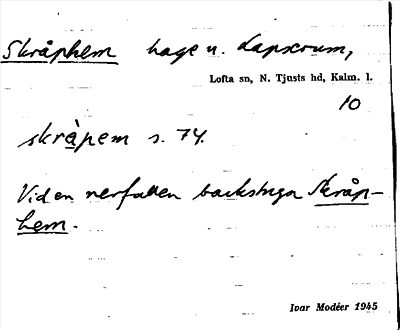 Skråphem hage u. Lapscrum,
Lofta sn, N. Tjusts hd, Kalm. l.
10
skrápem s. 74.
Vid en nerfallen backstuga Skråp-
hem.
Ivar Modéer 1945